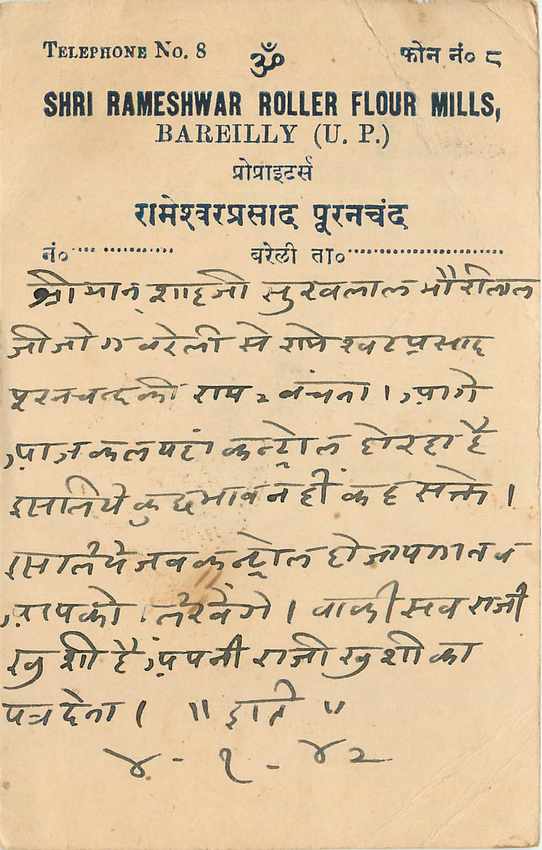 TELEPHONE No. 8 ॐ फोन नं० ८
SHRI RAMESHWAR ROLLER FLOUR MILLS,
BAREILLY (U. P.)
प्रोप्राइटर्स
रामेश्वरप्रसाद पूरनचंद
नं०............ बरेली ता०............
श्रीमान् शाह जी सुखलाल मौरीलाल
जी जोग बरेली से रामेश्वरप्रसाद
पूरनचन्द की राम २ बंचना। आगे
आजकल यहां कन्ट्रोल हो रहा है
इसलिये कुछ भाव नहीं कह सक्ते।
इसलिये जब कन्ट्रोल हो जायगा तब
आपको लिखेंगे। बाकी सब राजी
खुशी है अपनी राजी खुशी का
पत्र देना। "इति"
४-१-४२